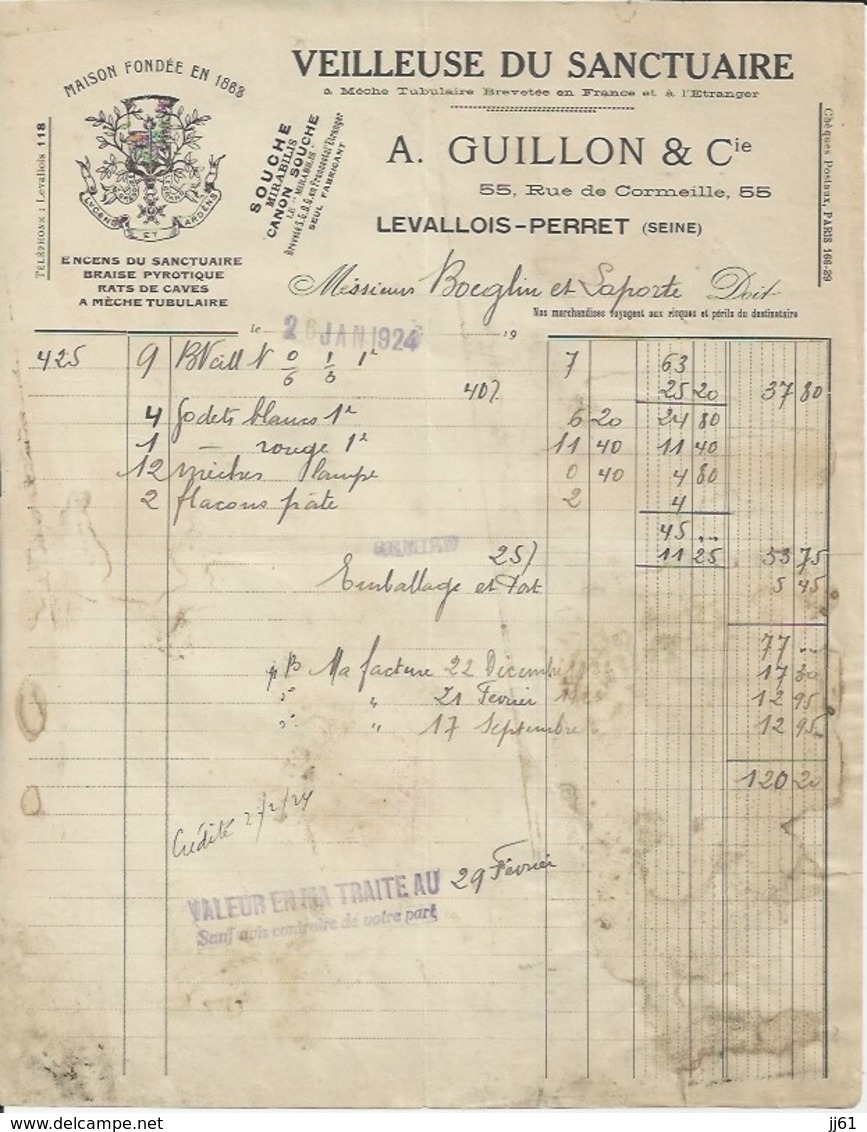 MAISON FONDÉE EN 1868
TÉLÉPHONE : Levallois 118
LUCENS ET ARDENS
ENCENS DU SANCTUAIRE
BRAISE PYROTIQUE
RATS DE CAVES
A MÈCHE TUBULAIRE
VEILLEUSE DU SANCTUAIRE
à Mèche Tubulaire Brevetée en France et à l'Etranger
SOUCHE
MIRABILIS
CANON SOUCHE
LE "MIRABILIS"
Brevetés S.G.D.G. en France et à l'Etranger
SEUL FABRICANT
A. GUILLON & Cie
55, Rue de Cormeille, 55
LEVALLOIS-PERRET (SEINE)
Chèques Postaux, PARIS 166-29
Messieurs Boeglin et Laporte Doit
Nos marchandises voyagent aux risques et périls du destinataire
le 26 JAN 1924 19
425 9 BVeill N 0/6 1/3 1e 7 63
40% 25 20 37 80
4 godets blancs 1e 6 20 24 80
1 — rouge 1e 11 40 11 40
12 mèches lampe 0 40 4 80
2 flacons pâte 2 4
45 ..
REMISE 25% 11 25 33 75
Emballage et Port 5 45
77 ..
Ma facture 22 Décembre 17 30
" 21 Février 12 95
" 17 Septembre 12 95
120 20
Crédité 2/2/24
VALEUR EN MA TRAITE AU 29 Février
Sauf avis contraire de votre part
jj61